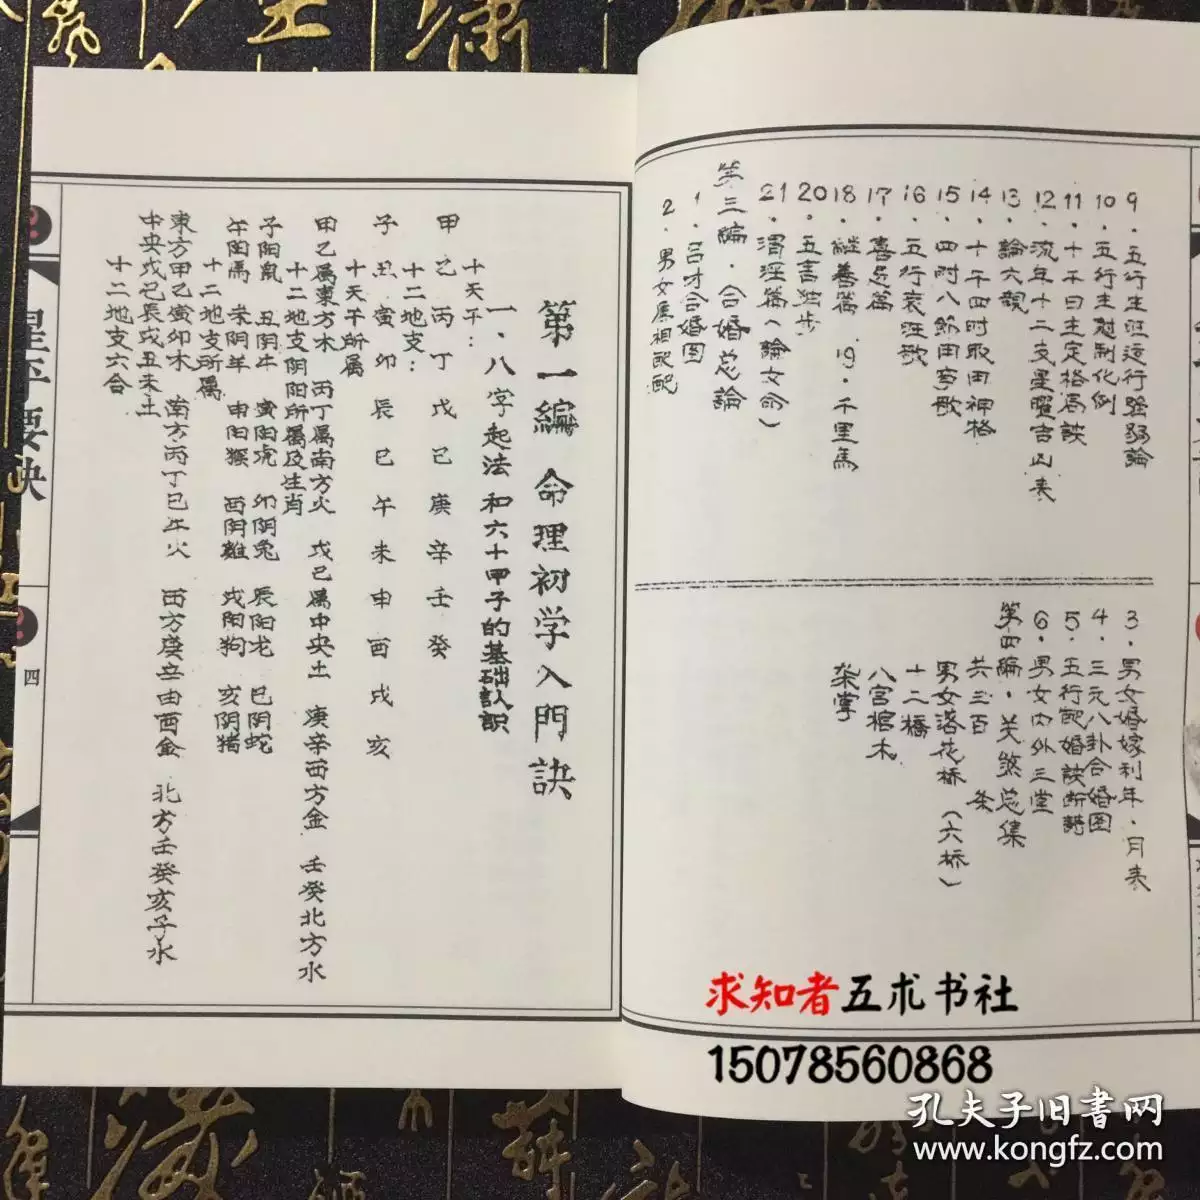 9．五行生旺运行强弱論
10．五行生尅制化例
11．十干日主定格局訣
12．流年十二支星曜吉凶表
13．論六親
14．十干四时取用神格
15．四时八節田亨歌
16．五行衰旺歌
17．喜忌篇
18．継善篇　19．千里馬
20．五言独步
21．渭泾篇（論女命）
第三編．合婚总論
1．吕才合婚图
2．男女属相配配
3．男女婚嫁利年．月表
4．三元八卦合婚图
5．五行配婚訣断語
6．男女内外三堂
第四編．关煞总集
共三百　条
男女落花桥（六桥）
十二橋
八宫棺木
柒掌
第一編　命理初学入門訣
一．八字起法和六十甲子的基础认識
十天干：
甲乙丙丁戊己庚辛壬癸
十二地支：
子丑寅卯辰巳午未申酉戌亥
十天干所属
甲乙属東方木　丙丁属南方火　戊己属中央土　庚辛西方金　壬癸北方水
十二地支阴阳所属及生肖
子阳鼠　丑阴牛　寅阳虎　卯阴兔　辰阳龙　巳阴蛇
午阳馬　未阴羊　申阳猴　酉阴雞　戌阳狗　亥阴猪
十二地支所属
東方甲乙寅卯木　南方丙丁巳午火　西方庚辛申酉金　北方壬癸亥子水
中央戊己辰戌丑未土
十二地支六合
星平要訣
四
求知者五术书社
15078560868
孔夫子旧書网
www.kongfz.com